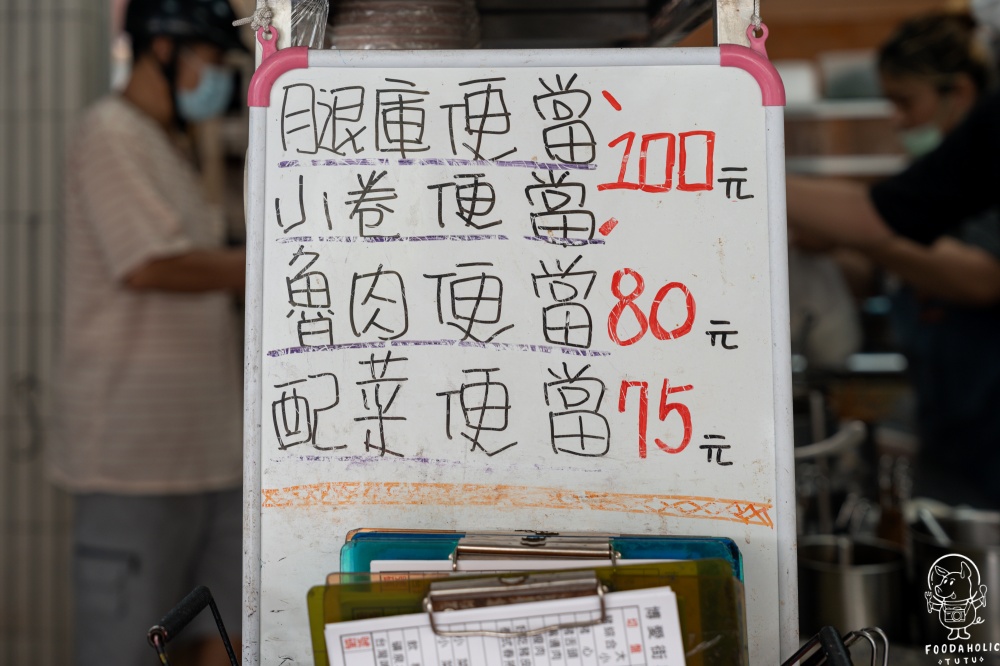 腿庫便當
小卷便當
100元
魯肉便當 80元
配菜便當 75元
博愛街
FOODAHOLIC
TUTU